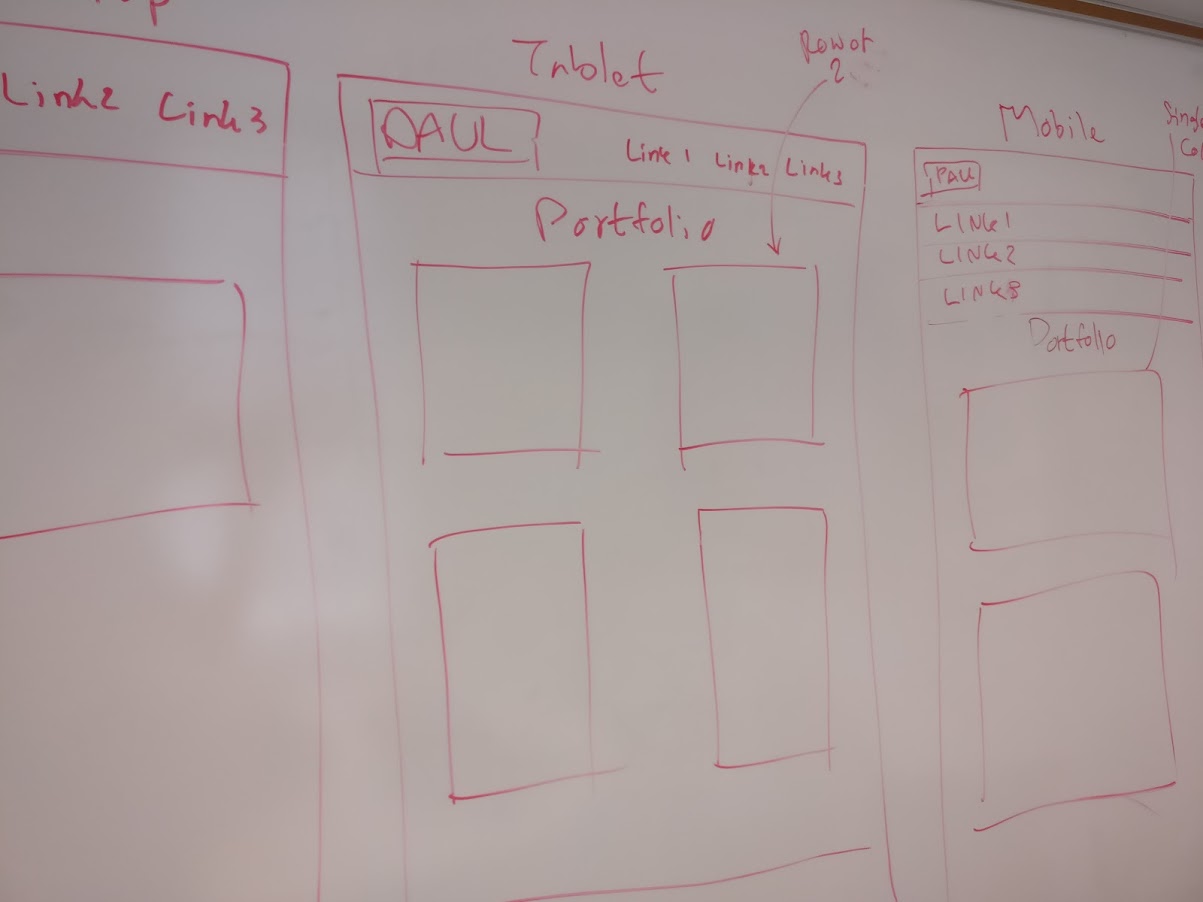 p
Link2 Link3
Tablet
Row of
2
PAUL
Link 1 Link2 Link3
Portfolio
Mobile
Single
Col
PAUL
LINK1
LINK2
LINK3
Portfolio